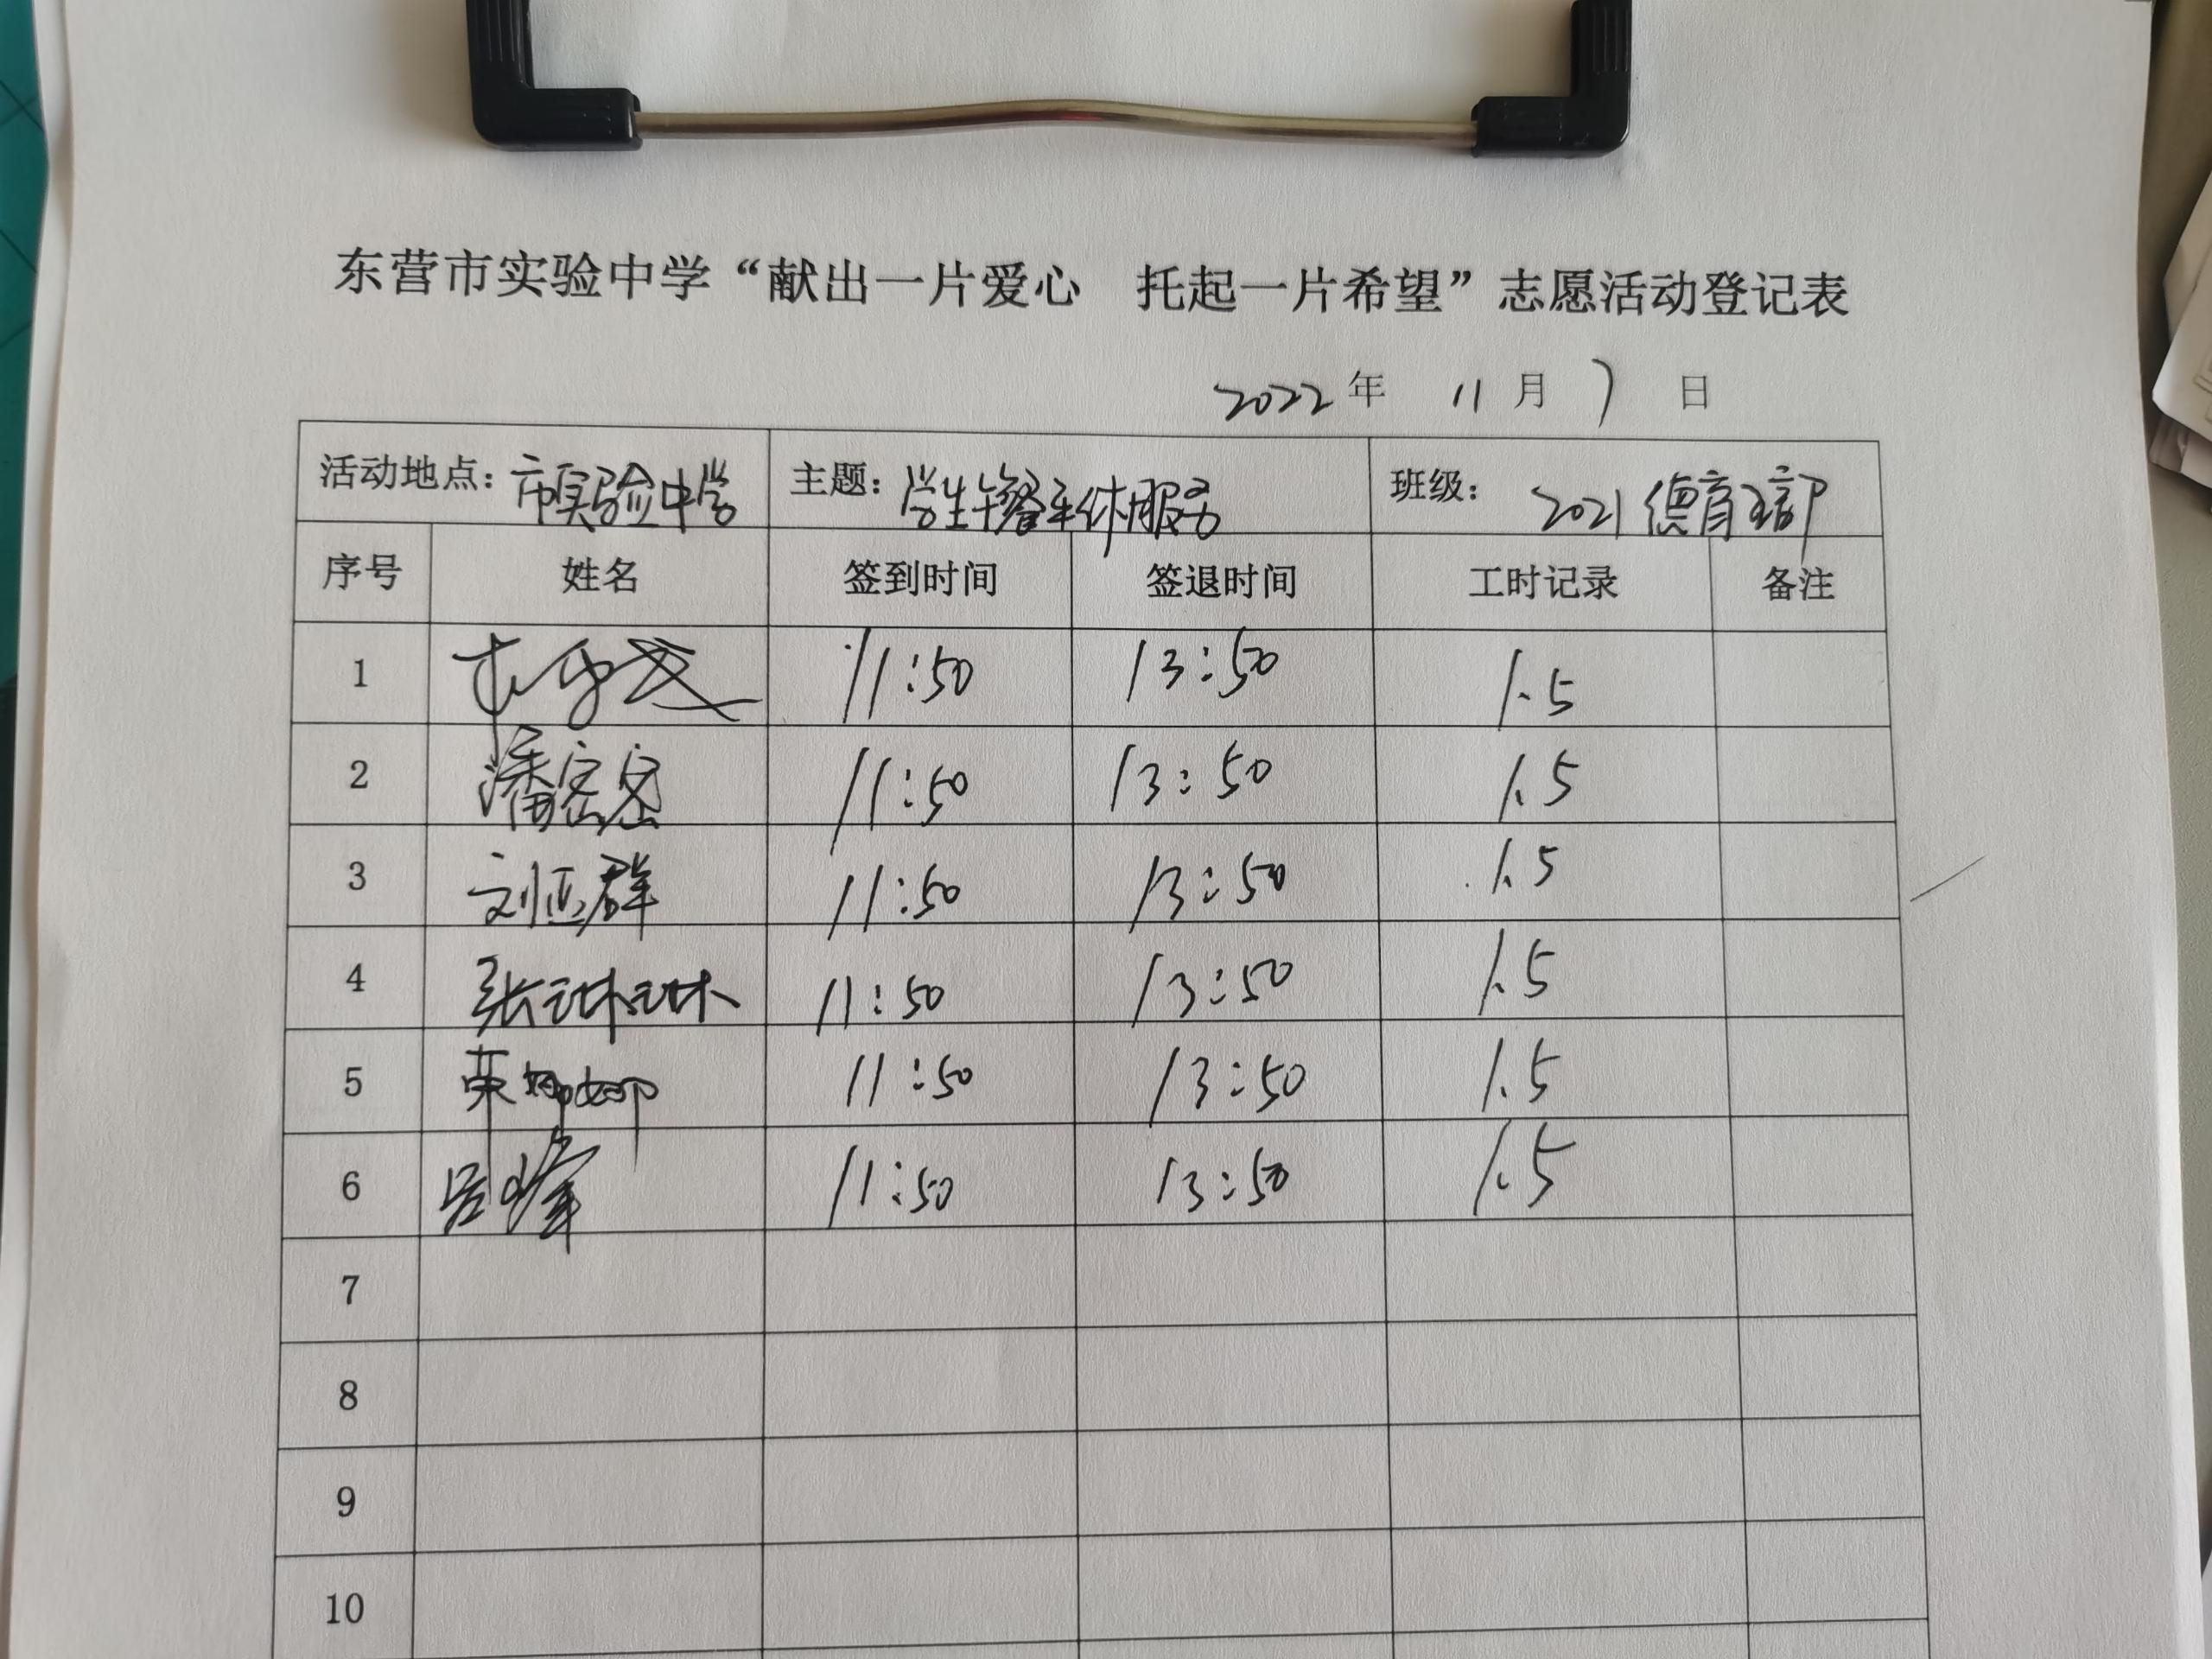 东营市实验中学“献出一片爱心 托起一片希望”志愿活动登记表
2022年 11月 7日
活动地点：市实验中学 主题：学生午餐午休服务 班级：2021德育支部
序号 姓名 签到时间 签退时间 工时记录 备注
1 11:50 13:50 1.5
2 潘密密 11:50 13:50 1.5
3 刘亚群 11:50 13:50 1.5
4 张琳琳 11:50 13:50 1.5
5 荣娜娜 11:50 13:50 1.5
6 吕峰 11:50 13:50 1.5
7
8
9
10